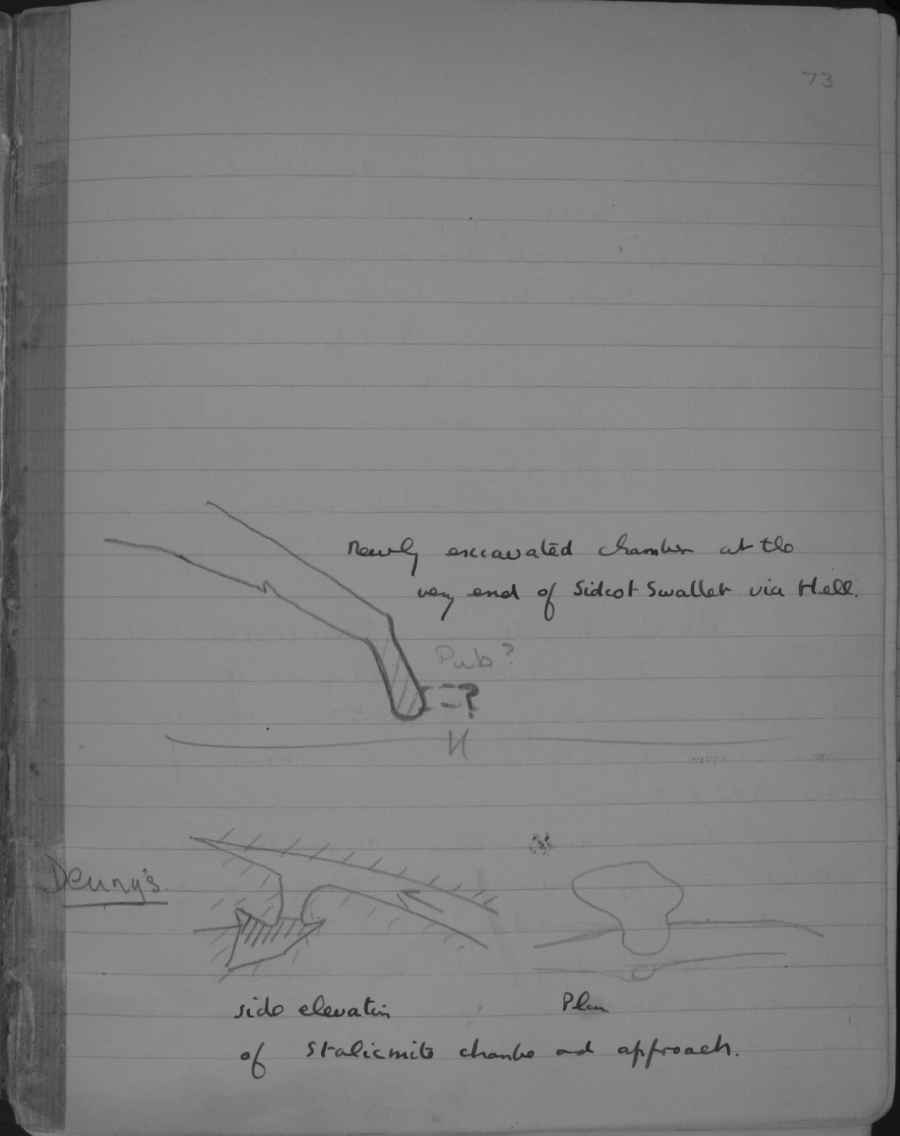 73
Newly excavated chamber at the
very end of Sidcot Swallet via Hell.
Pub?
=?
Denny's
side elevation Plan
of Stalicmite chamber and approach.